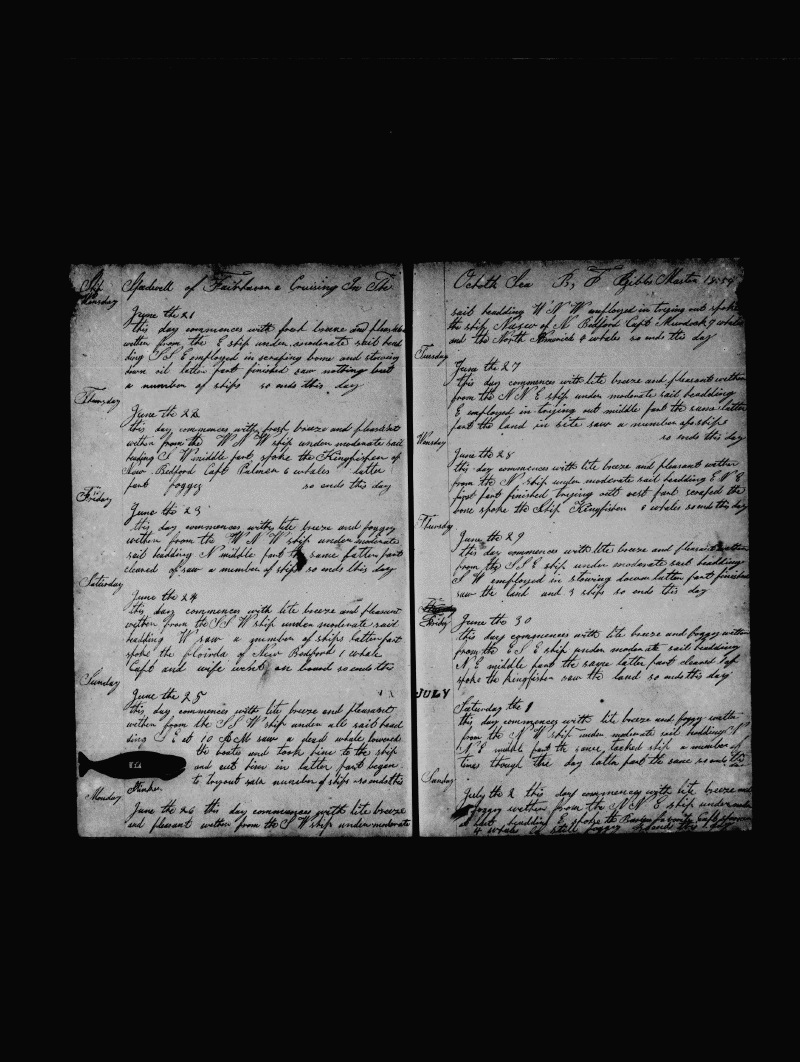 Ship Speedwell of Fairhaven a Cruising In The
Wensday
June the 21
this day commences with fresh breeze and pleasant
wether from the E ship under moderate sail head
ding S S E employed in scraping bone and stowing
down oil latter part finished saw nothing but
a number of ships so ends this day
Thursday
June the 22
this day commences with fresh breeze and pleasant
wether from the W N W ship under moderate sail
heading S W middle part spoke the Kingfisher of
New Bedford Capt Palmer 6 whales latter
part foggy so ends this day
Friday
June the 23
this day commences with lite breeze and foggy
wether from the W N W ship under moderate
sail heading N middle part the same latter part
cleared of saw a number of ship so ends this day
Saturday
June the 24
this day commences with lite breeze and pleasant
wether from the S S W ship under moderate sail
heading W saw a number of ships latter part
spoke the florida of New Bedford 1 whale
Capt and wife went on board so ends this
Sunday
June the 25
this day commences with lite breeze and pleasant
wether from the S S W ship under all sail head
ding S E at 10 A M saw a dead whale lowered
the boats and took hime to the ship
and cut him in latter part began
to try out saw number of ships so ends this
Monday
June the 26 this day commences with lite breeze
and pleasant wether from the S W ship under moderate
Ochotk Sea B, F Gibbs Master 1854
sail heading W N W employed in trying out spoke
the ship of N Bedford Capt Murdock 9 whales
and the North 4 whales so ends the day
Tuesday
June the 27
this day commences with lite breeze and pleasant wether
from the N N E ship under moderate sail heading
E employed in trying out middle part the same latter
part the land in site saw a number of ships
so ends this day
Wensday
June the 28
this day commences with lite breeze and pleasant wether
from the N ship under moderate sail heading E N E
first part finished trying out rest part scraped the
bone spoke the Ship Kingfisher whales so ends this day
Thursday
June the 29
this day commences with lite breeze and pleasant wether
from the S S E ship under moderate sail heading
S W employed in stowing down latter part finished
saw the land and 3 ships so ends this day
Friday
June the 30
this day commences with lite breeze and foggy wether
from the E S E ship under moderate sail heading
N E middle part the same latter part cleared up
spoke the kingfisher saw the land so ends this day
JULY
Saturday the 1
this day commences with lite breeze and foggy wether
from the N W ship under moderate sail heading
N E middle part the same, tacked ship a number of
times though the day latter part the same so ends
Sunday
July the 2 this day commences with lite breeze and
foggy wether from the N N E ship under
sail heading E spoke the
4 whales still foggy so ends this day